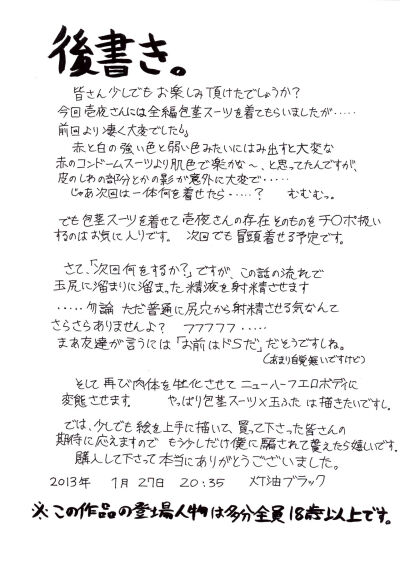 後書き。
皆さん少しでもお楽しみ頂けたでしょうか?
今回壱夜さんには全編包茎スーツを着てもらいましたが‥‥‥
前回より凄く大変でした
赤と白の強い色と弱い色みたいにはみ出すと大変な
赤のコンドームスーツより肌色で楽かな〜、と思ってたんですが、
皮のしわの部分とかの影が意外に大変で‥‥‥
じゃあ次回は一体何を着せたら‥‥‥? むむむっ。
でも包茎スーツを着せて壱夜さんの存在そのものをチ○ポ扱い
するのはお気に入りです。 次回でも冒頭着せる予定です。
さて、「次回何をするか?」ですが、この話の流れで
玉尻に溜まりに溜まった精液を射精させます
‥‥‥勿論 ただ普通に尻穴から射精させる気なんて
さらさらありませんよ? フフフフフ‥‥‥
まあ友達が言うには「お前はドSだ」だそうですしね。
(あまり自覚無いですけど)
そして再び肉体を牝化させて ニューハーフエロボディに
変態させます。 やっぱり包茎スーツ×玉ふたは描きたいですし。
では、少しでも絵を上手に描いて、買って下さった皆さんの
期待に応えますので もう少しだけ僕に騙されて貰えたら嬉しいです。
購入して下さって本当にありがとうございました。
2013年 1月27日 20:35 油ブラック
※この作品の登場人物は多分全員18歳以上です。